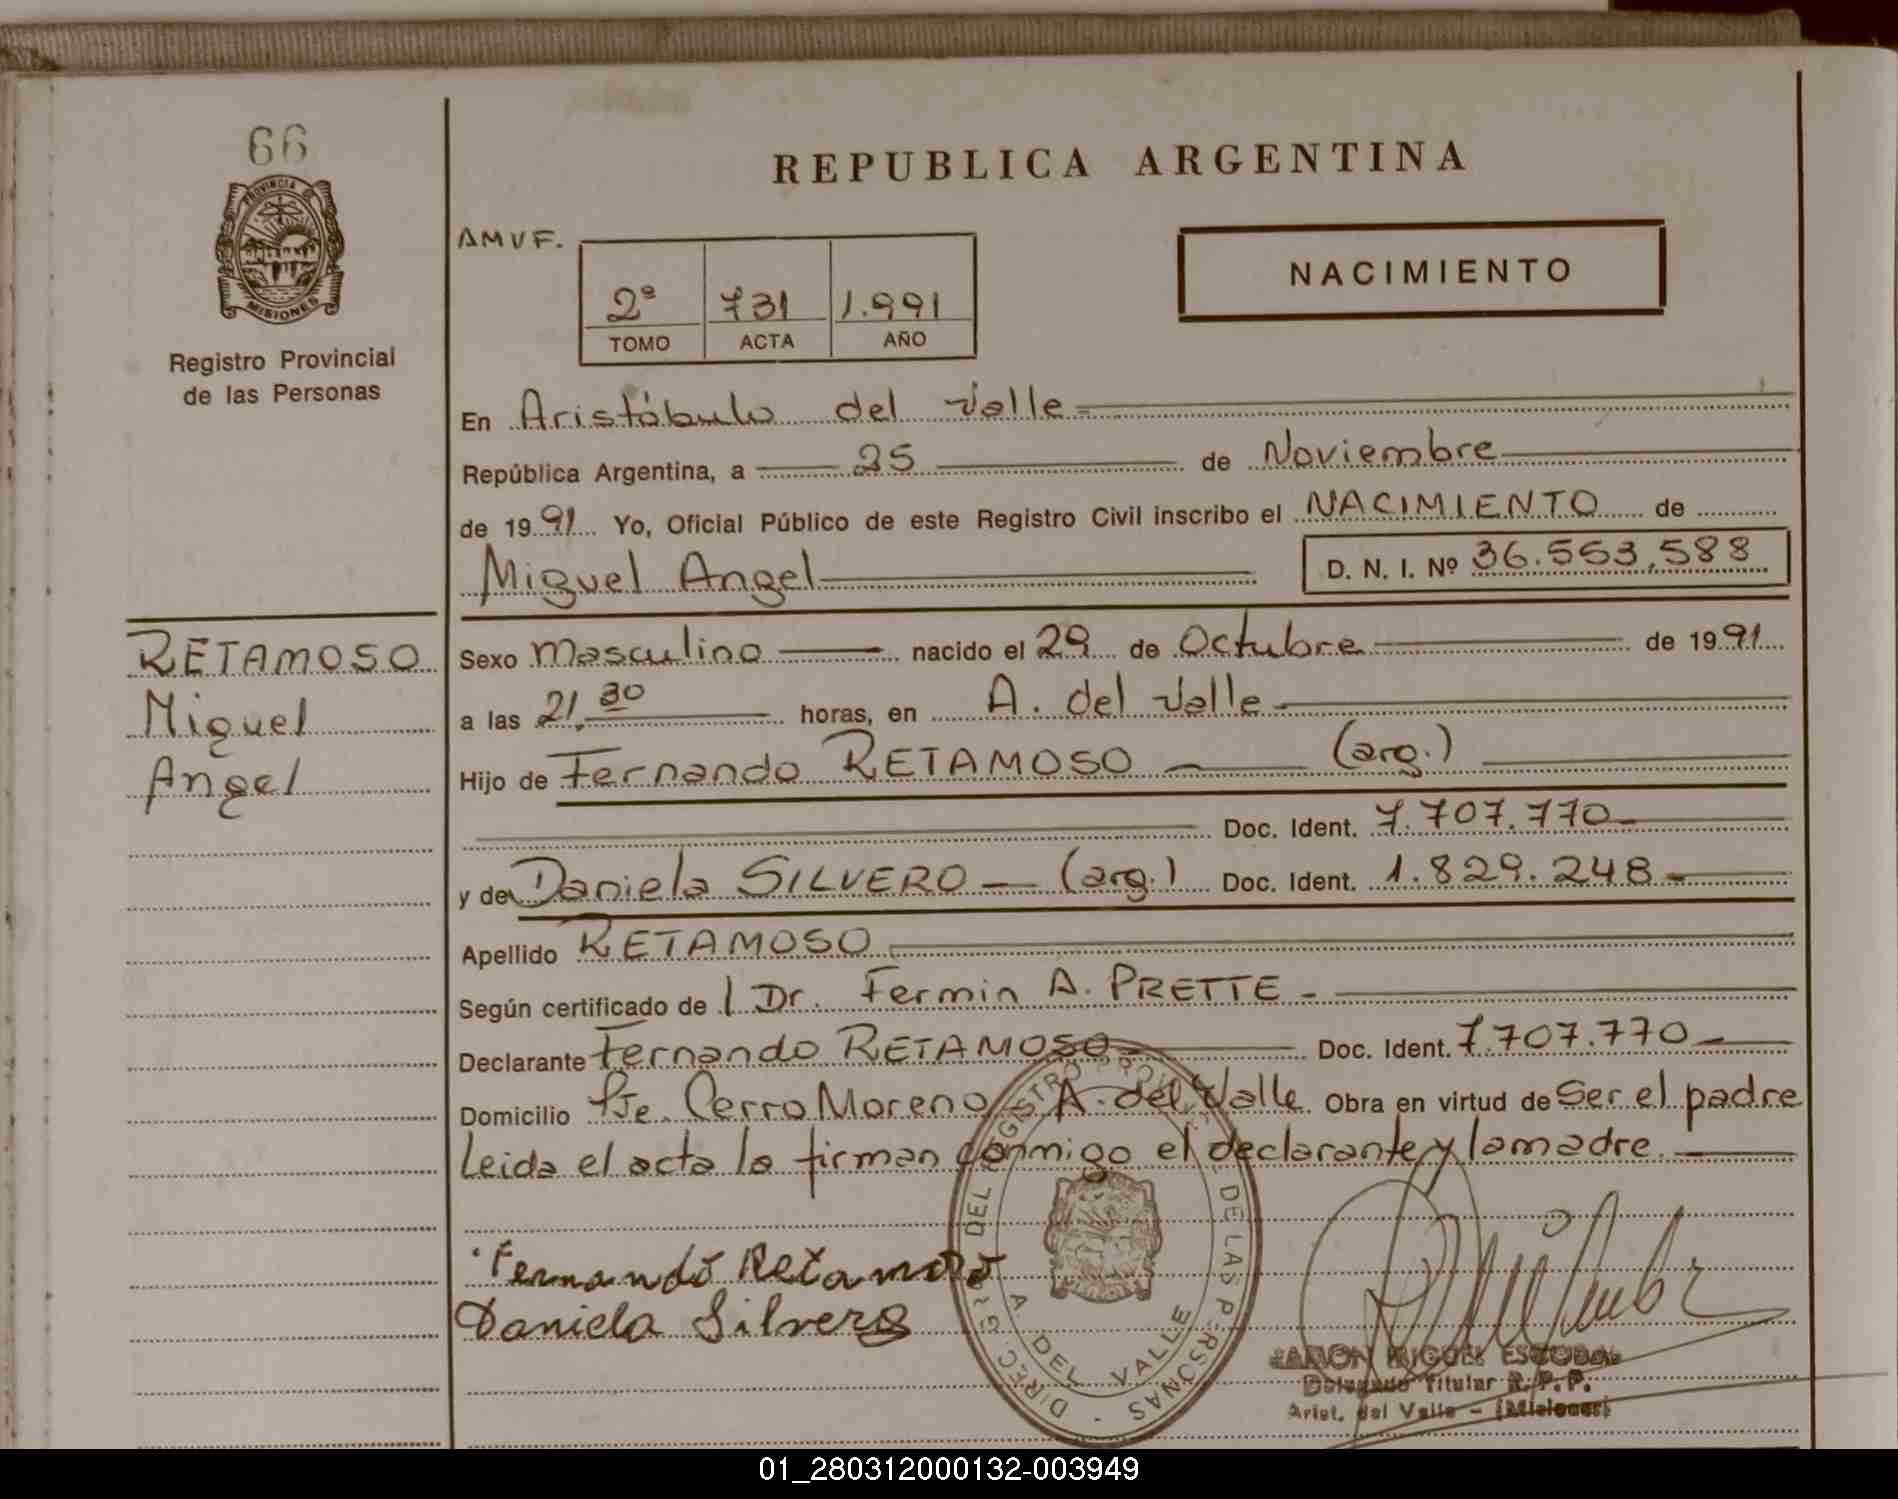 66
PROVINCIA DE
MISIONES
Registro Provincial
de las Personas
REPUBLICA ARGENTINA
AMVF.
2º 731 1.991
TOMO ACTA AÑO
NACIMIENTO
En Aristóbulo del Valle
República Argentina, a 25 de Noviembre
de 1991 Yo, Oficial Público de este Registro Civil inscribo el NACIMIENTO de
Miguel Angel D. N. I. Nº 36.553.588
RETAMOSO
Miguel
Angel
Sexo Masculino nacido el 29 de Octubre de 1991
a las 21,30 horas, en A. del Valle
Hijo de Fernando RETAMOSO (arg.)
Doc. Ident. 7.707.770
y de Daniela SILVERO (arg.) Doc. Ident. 1.829.248
Apellido RETAMOSO
Según certificado de l Dr. Fermin A. PRETTE
Declarante Fernando RETAMOSO Doc. Ident. 7.707.770
Domicilio Pje. Cerro Moreno A. del Valle Obra en virtud de Ser el padre
Leida el acta la firman conmigo el declarante y la madre.
Fernando Retamoso
Daniela Silvero
DEL REGISTRO DE LAS PERSONAS
A DEL VALLE
MIGUEL ESCOBAR
Delegado Titular R.P.P.
Arist. del Valle - (Misiones)
01_280312000132-003949